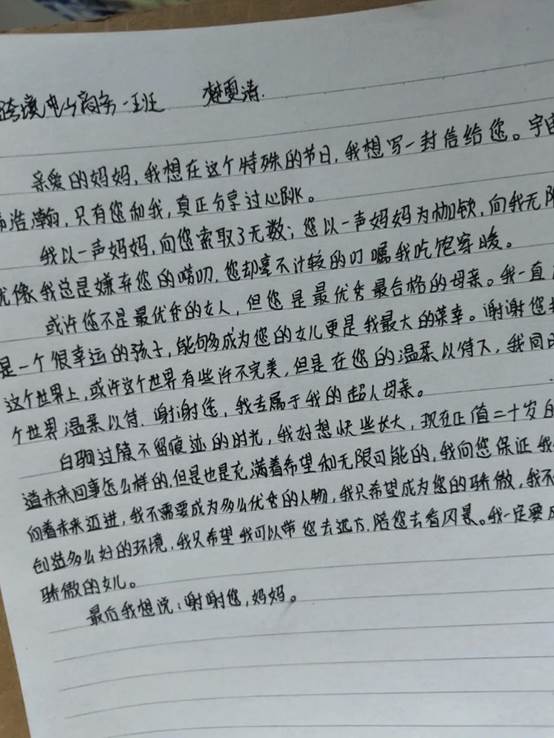 跨境电商商务一班 楚夏清.
亲爱的妈妈,我想在这个特殊的节日,我想写一封信给您。宇宙
浩瀚,只有您和我,真正分享过心跳。
我以一声妈妈,向您索取了无数;您以一声妈妈为枷锁,向我无限
就像我总是嫌弃您的唠叨,您却毫不计较的叮嘱我吃饱穿暖。
或许您不是最优秀的女人,但您是最优秀最合格的母亲。我一直
是一个很幸运的孩子,能够成为您的女儿更是我最大的荣幸。谢谢您
这个世界上,或许这个世界有些许不完美,但是在您的温柔以待下,我同
个世界温柔以待.谢谢您,我专属于我的超人母亲。
白驹过隙不留痕迹的时光,我好想快些长大,现在正值二十岁
道未来回事怎么样的,但是也是充满着希望和无限可能的,我向您保证我
向着未来迈进,我不需要成为多么优秀的人物,我只希望成为您的骄傲,我不
创造多么好的环境,我只希望我可以带您去远方,陪您去看风景。我一定要
骄傲的女儿。
最后我想说:谢谢您,妈妈。